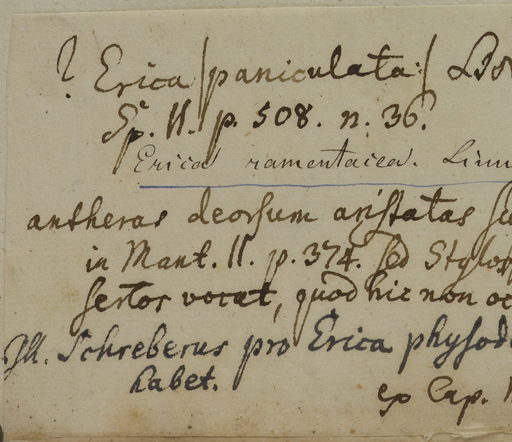 ? Erica /paniculata:/
Sp. II. p. 508. n. 36?
Erica ramentacea. Linn
antheras deorsum aristatas
in Mant. II. p. 374. sed Stylos
sertos vocat, quod hic non
Ill. Schreberus pro Erica physod
habet.
ex Cap.